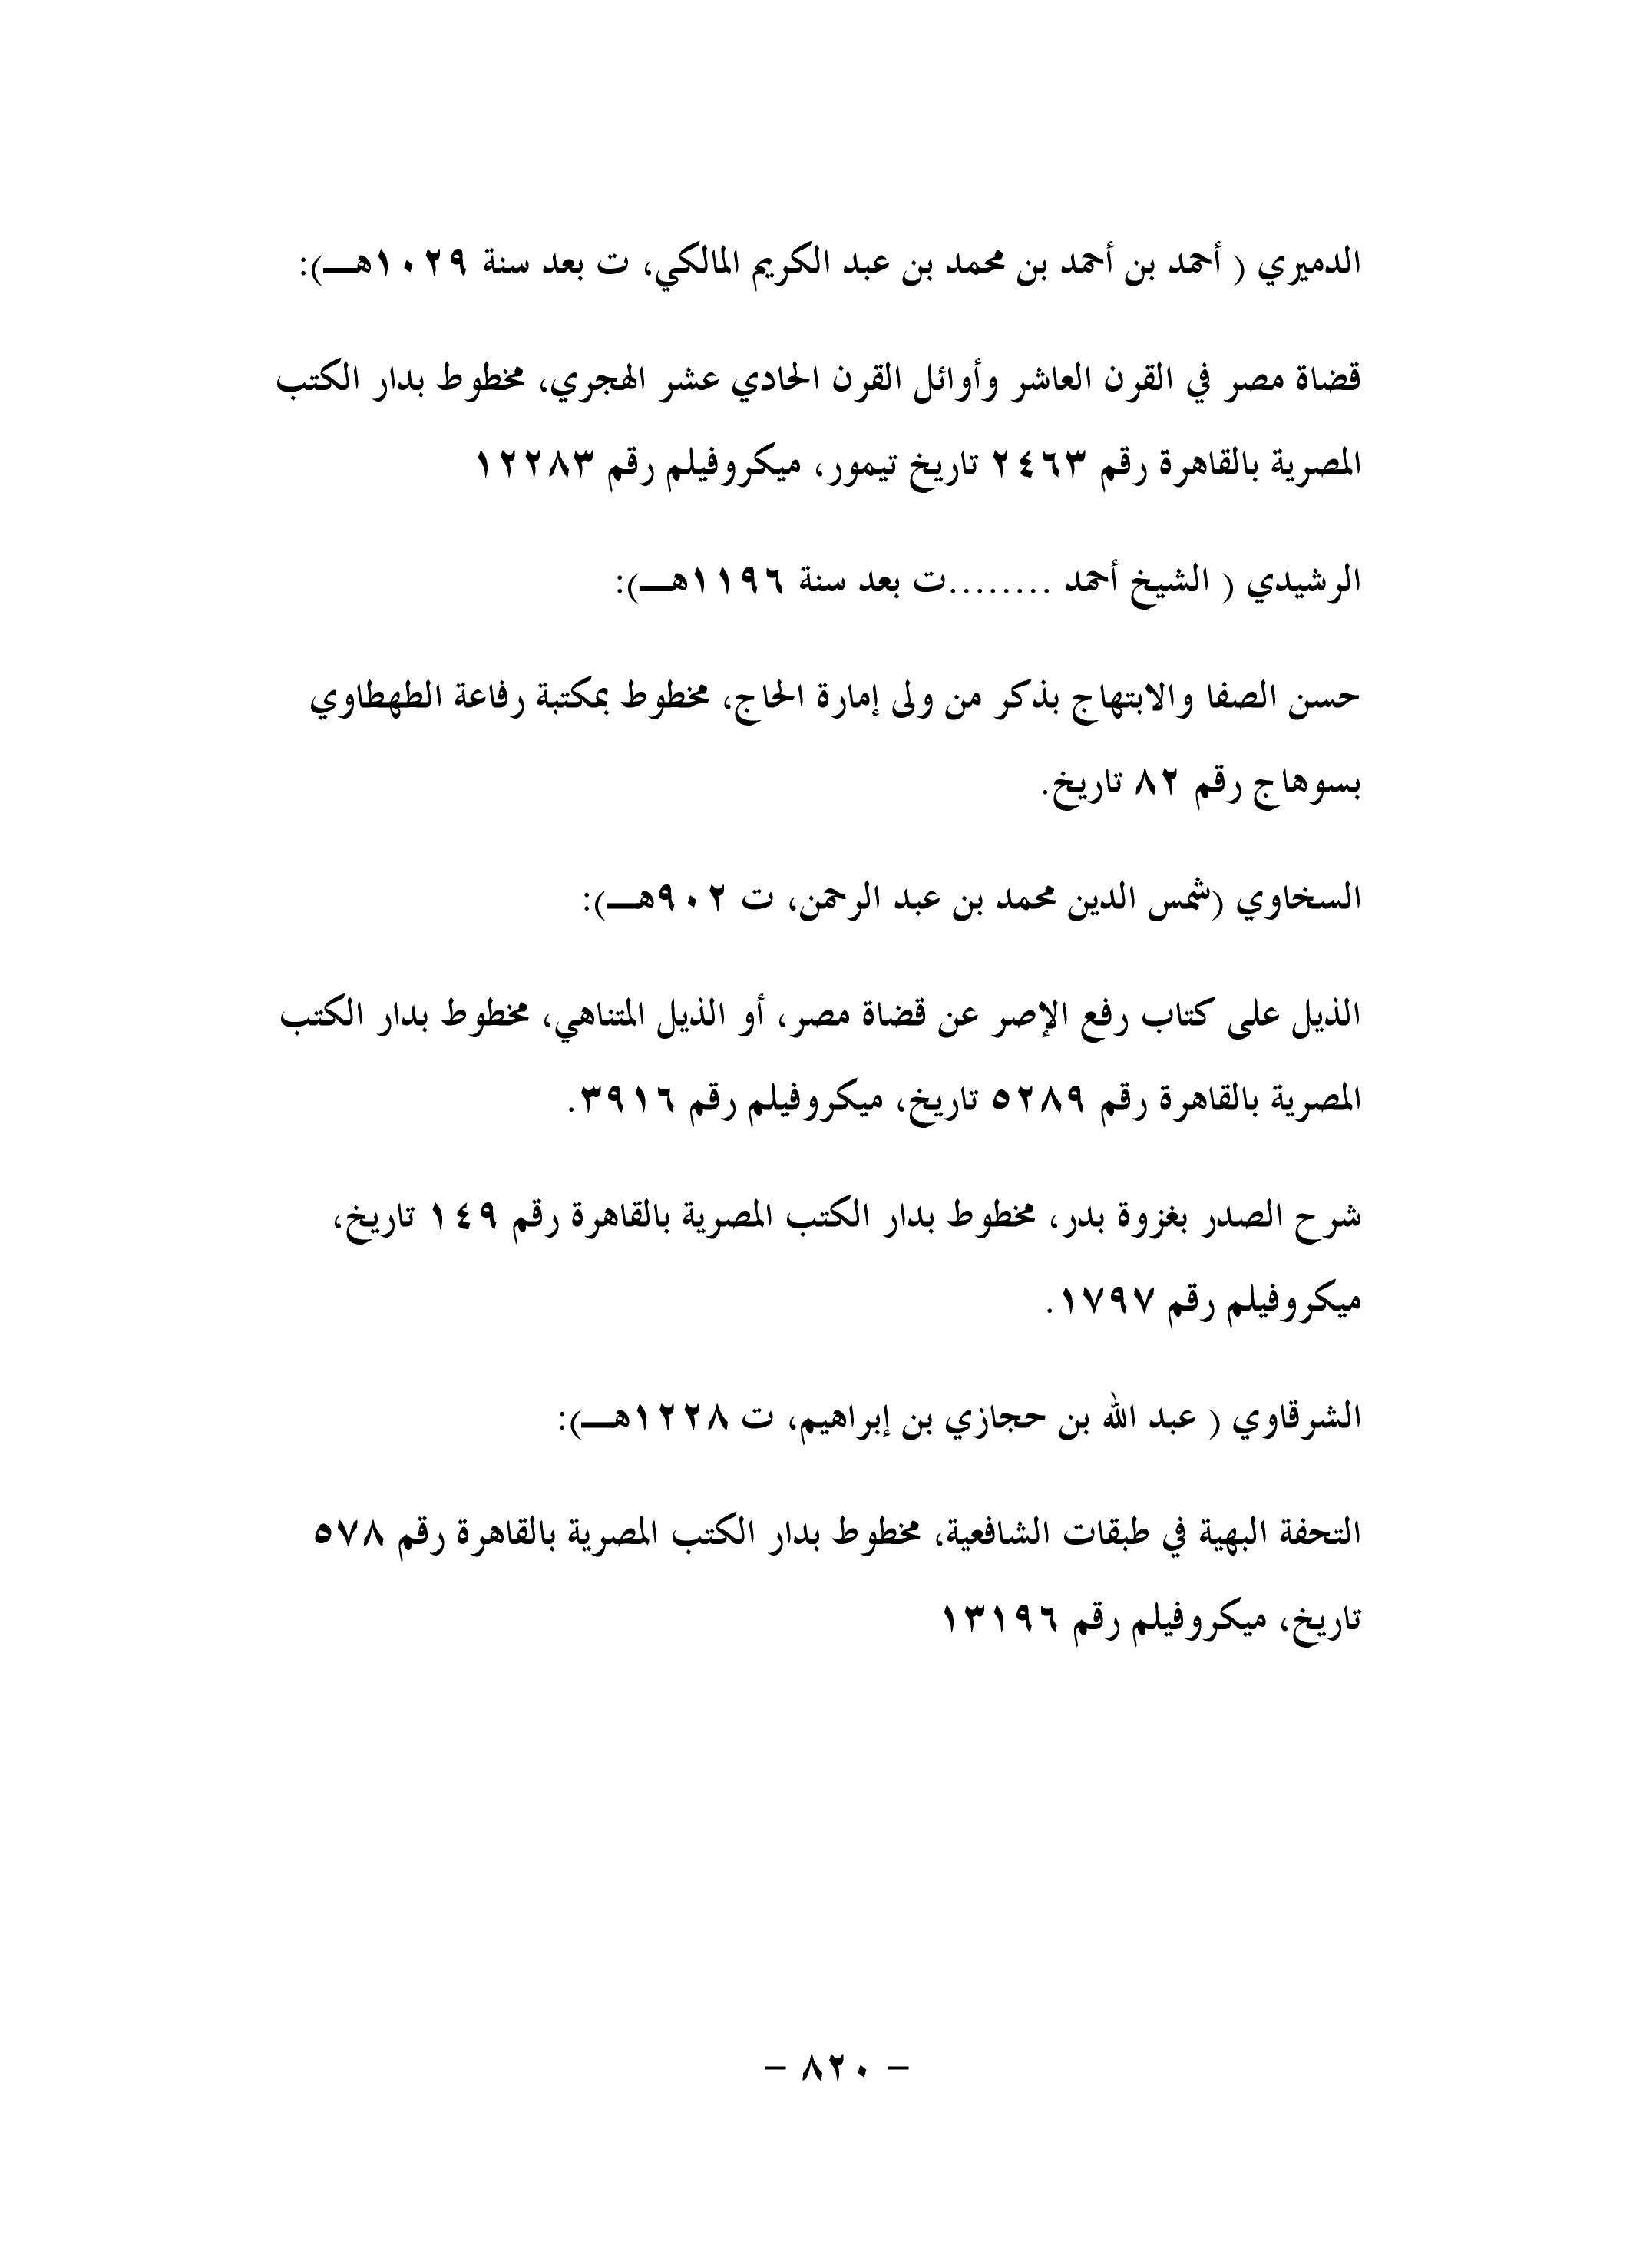 الدميري ( أحمد بن أحمد بن محمد بن عبد الكريم المالكي، ت بعد سنة ١٠٢٩هـــ):
قضاة مصر في القرن العاشر وأوائل القرن الحادي عشر الهجري، مخطوط بدار الكتب
المصرية بالقاهرة رقم ٢٤٦٣ تاريخ تيمور، ميكروفيلم رقم ١٢٢٨٣
الرشيدي ( الشيخ أحمد ........ت بعد سنة ١١٩٦هـــ):
حسن الصفا والابتهاج بذكر من ولى إمارة الحاج، مخطوط بمكتبة رفاعة الطهطاوي
بسوهاج رقم ٨٢ تاريخ.
السخاوي (شمس الدين محمد بن عبد الرحمن، ت ٩٠٢هـــ):
الذيل على كتاب رفع الإصر عن قضاة مصر، أو الذيل المتناهي، مخطوط بدار الكتب
المصرية بالقاهرة رقم ٥٢٨٩ تاريخ، ميكروفيلم رقم ٣٩١٦.
شرح الصدر بغزوة بدر، مخطوط بدار الكتب المصرية بالقاهرة رقم ١٤٩ تاريخ،
ميكروفيلم رقم ١٧٩٧.
الشرقاوي ( عبد الله بن حجازي بن إبراهيم، ت ١٢٢٨هـــ):
التحفة البهية في طبقات الشافعية، مخطوط بدار الكتب المصرية بالقاهرة رقم ٥٧٨
تاريخ، ميكروفيلم رقم ١٣١٩٦
– ٨٢٠ –